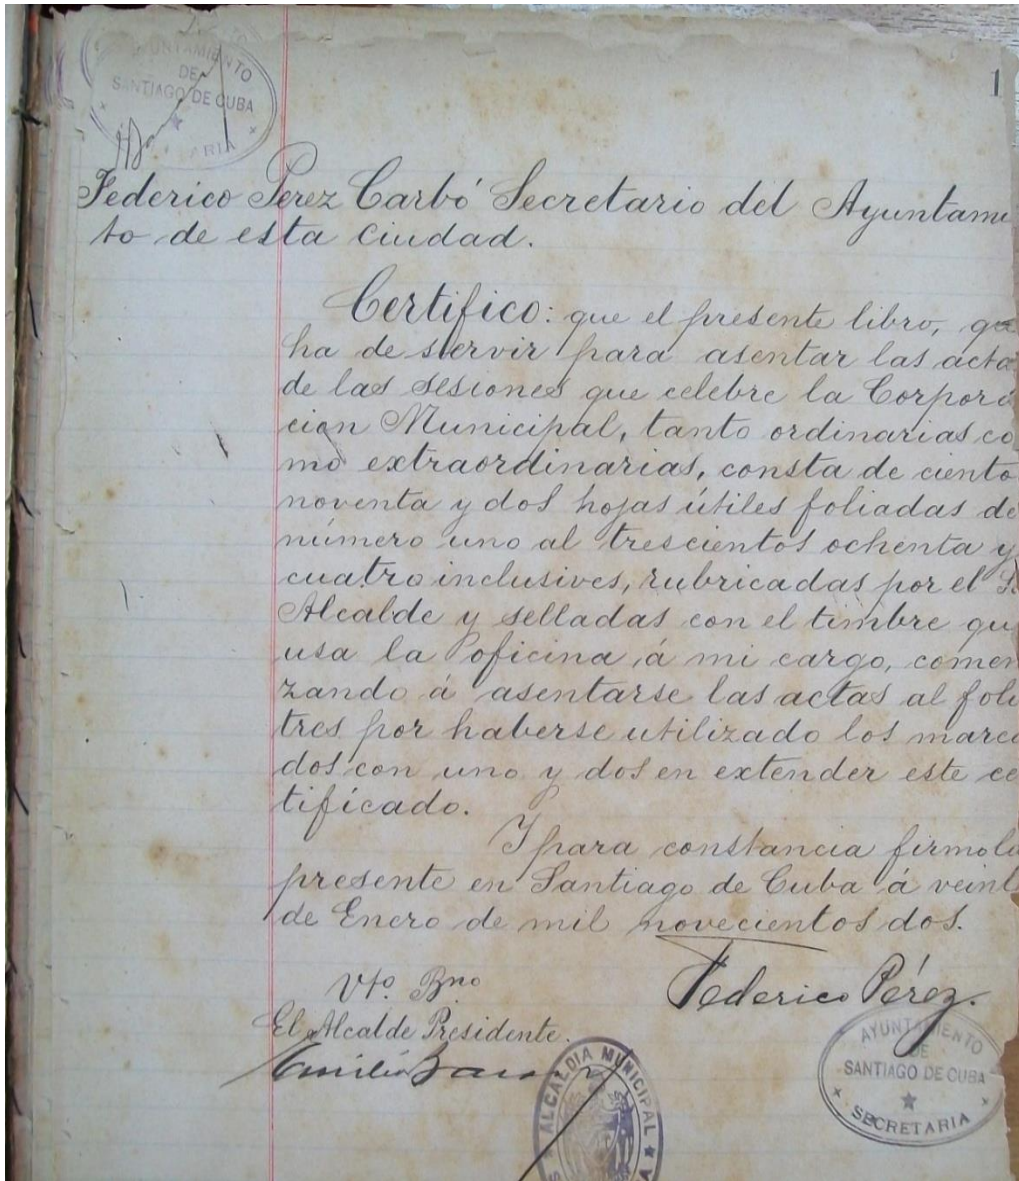 AYUNTAMIENTO
DE
SANTIAGO DE CUBA
1
Federico Perez Carbó Secretario del Ayuntami
to de esta Ciudad.
Certifico: que el presente libro, que
ha de servir para asentar las acta
de las sesiones que celebre la Corpora
cion Municipal, tanto ordinarias co
mo extraordinarias, consta de ciento
noventa y dos hojas útiles foliadas de
número uno al trescientos ochenta y
cuatro inclusives, rubricadas por el S.
Alcalde y selladas con el timbre qu
usa la oficina á mi cargo, comen
zando á asentarse las actas al foli
tres por haberse utilizado los marca
dos con uno y dos en extender este ce
tificado.
Y para constancia firmo la
presente en Santiago de Cuba á veint
de Enero de mil novecientos dos.
Vto. Bno
Federico Pérez.
El Alcalde Presidente.
Emilio Bacardí
ALCALDIA MUNICIPAL
AYUNTAMIENTO
DE
SANTIAGO DE CUBA
SECRETARIA